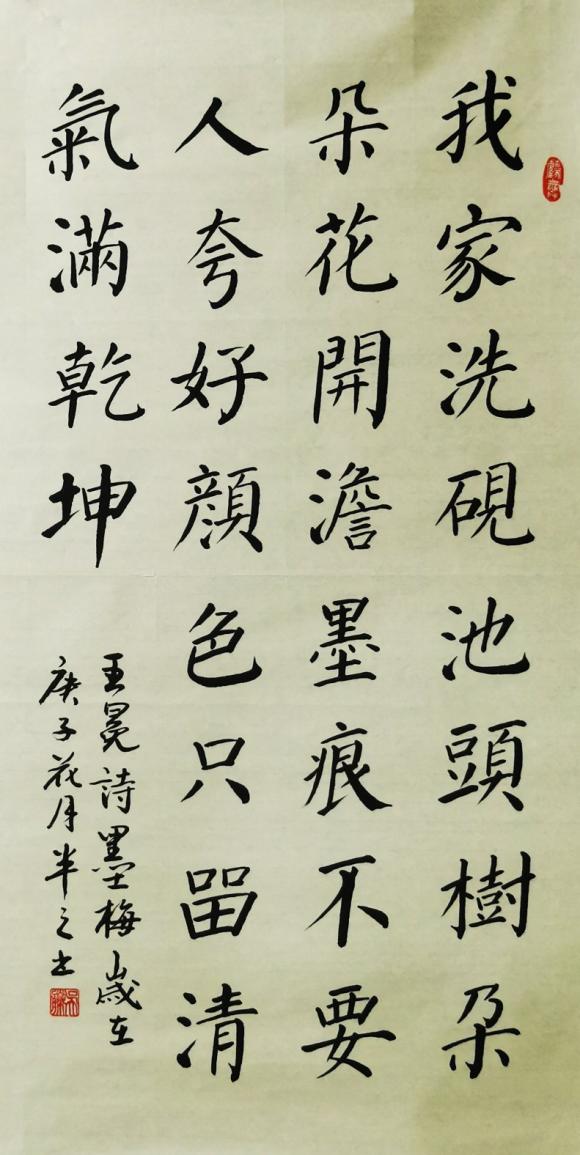 我家洗硯池頭樹朵
朵花開澹墨痕不要
人夸好顏色只留清
氣滿乾坤
王冕詩墨梅歲在
庚子花月半之書